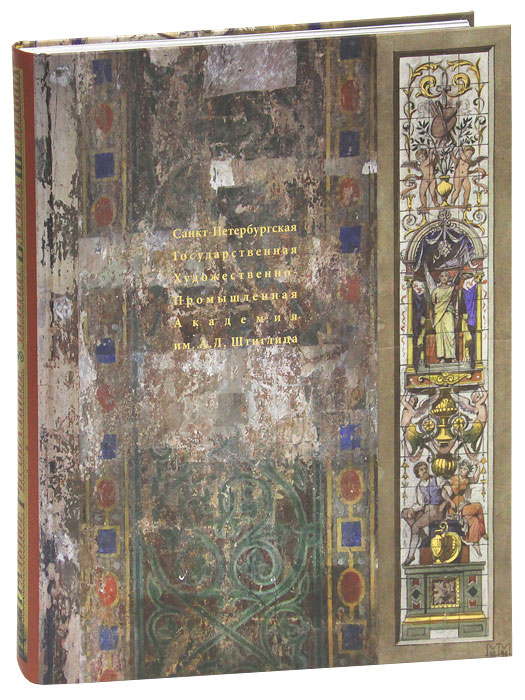 Санкт-Петербургская
Государственная
Художественно-
Промышленная
Академия
им. А.Л. Штиглица